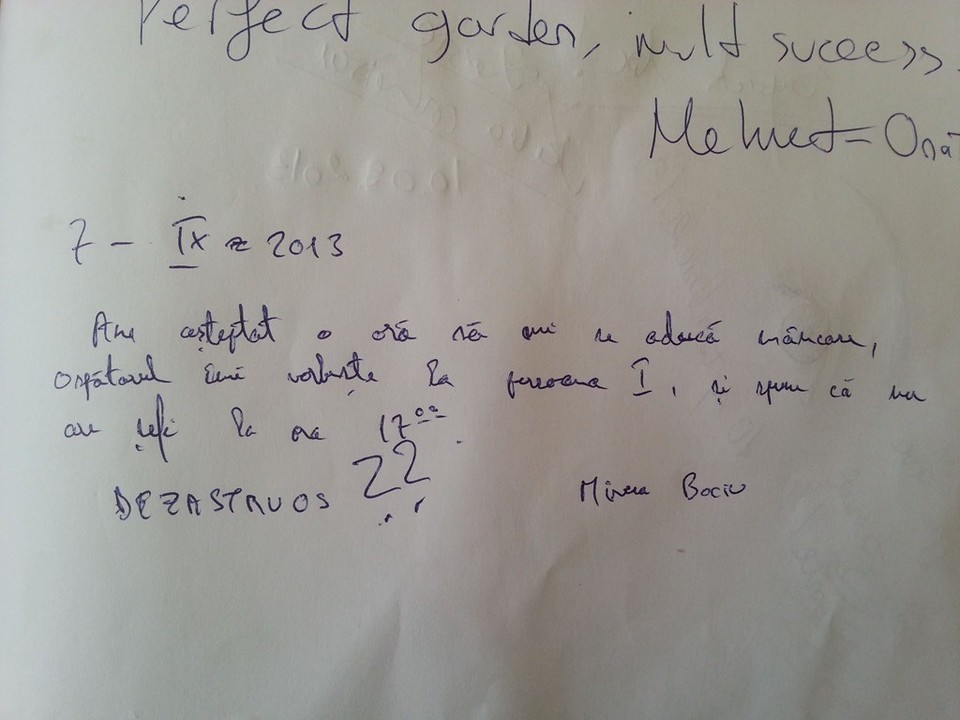 Perfect garden, mult success.
Mehmet = Ona
7 - IX - 2013
Am așteptat o oră să mi se aducă mâncare,
Ospătarul îmi vorbește la persoana I, și spune că nu
are șefi la ora 17ºº.
DEZASTRUOS ??
Mircea Bociu